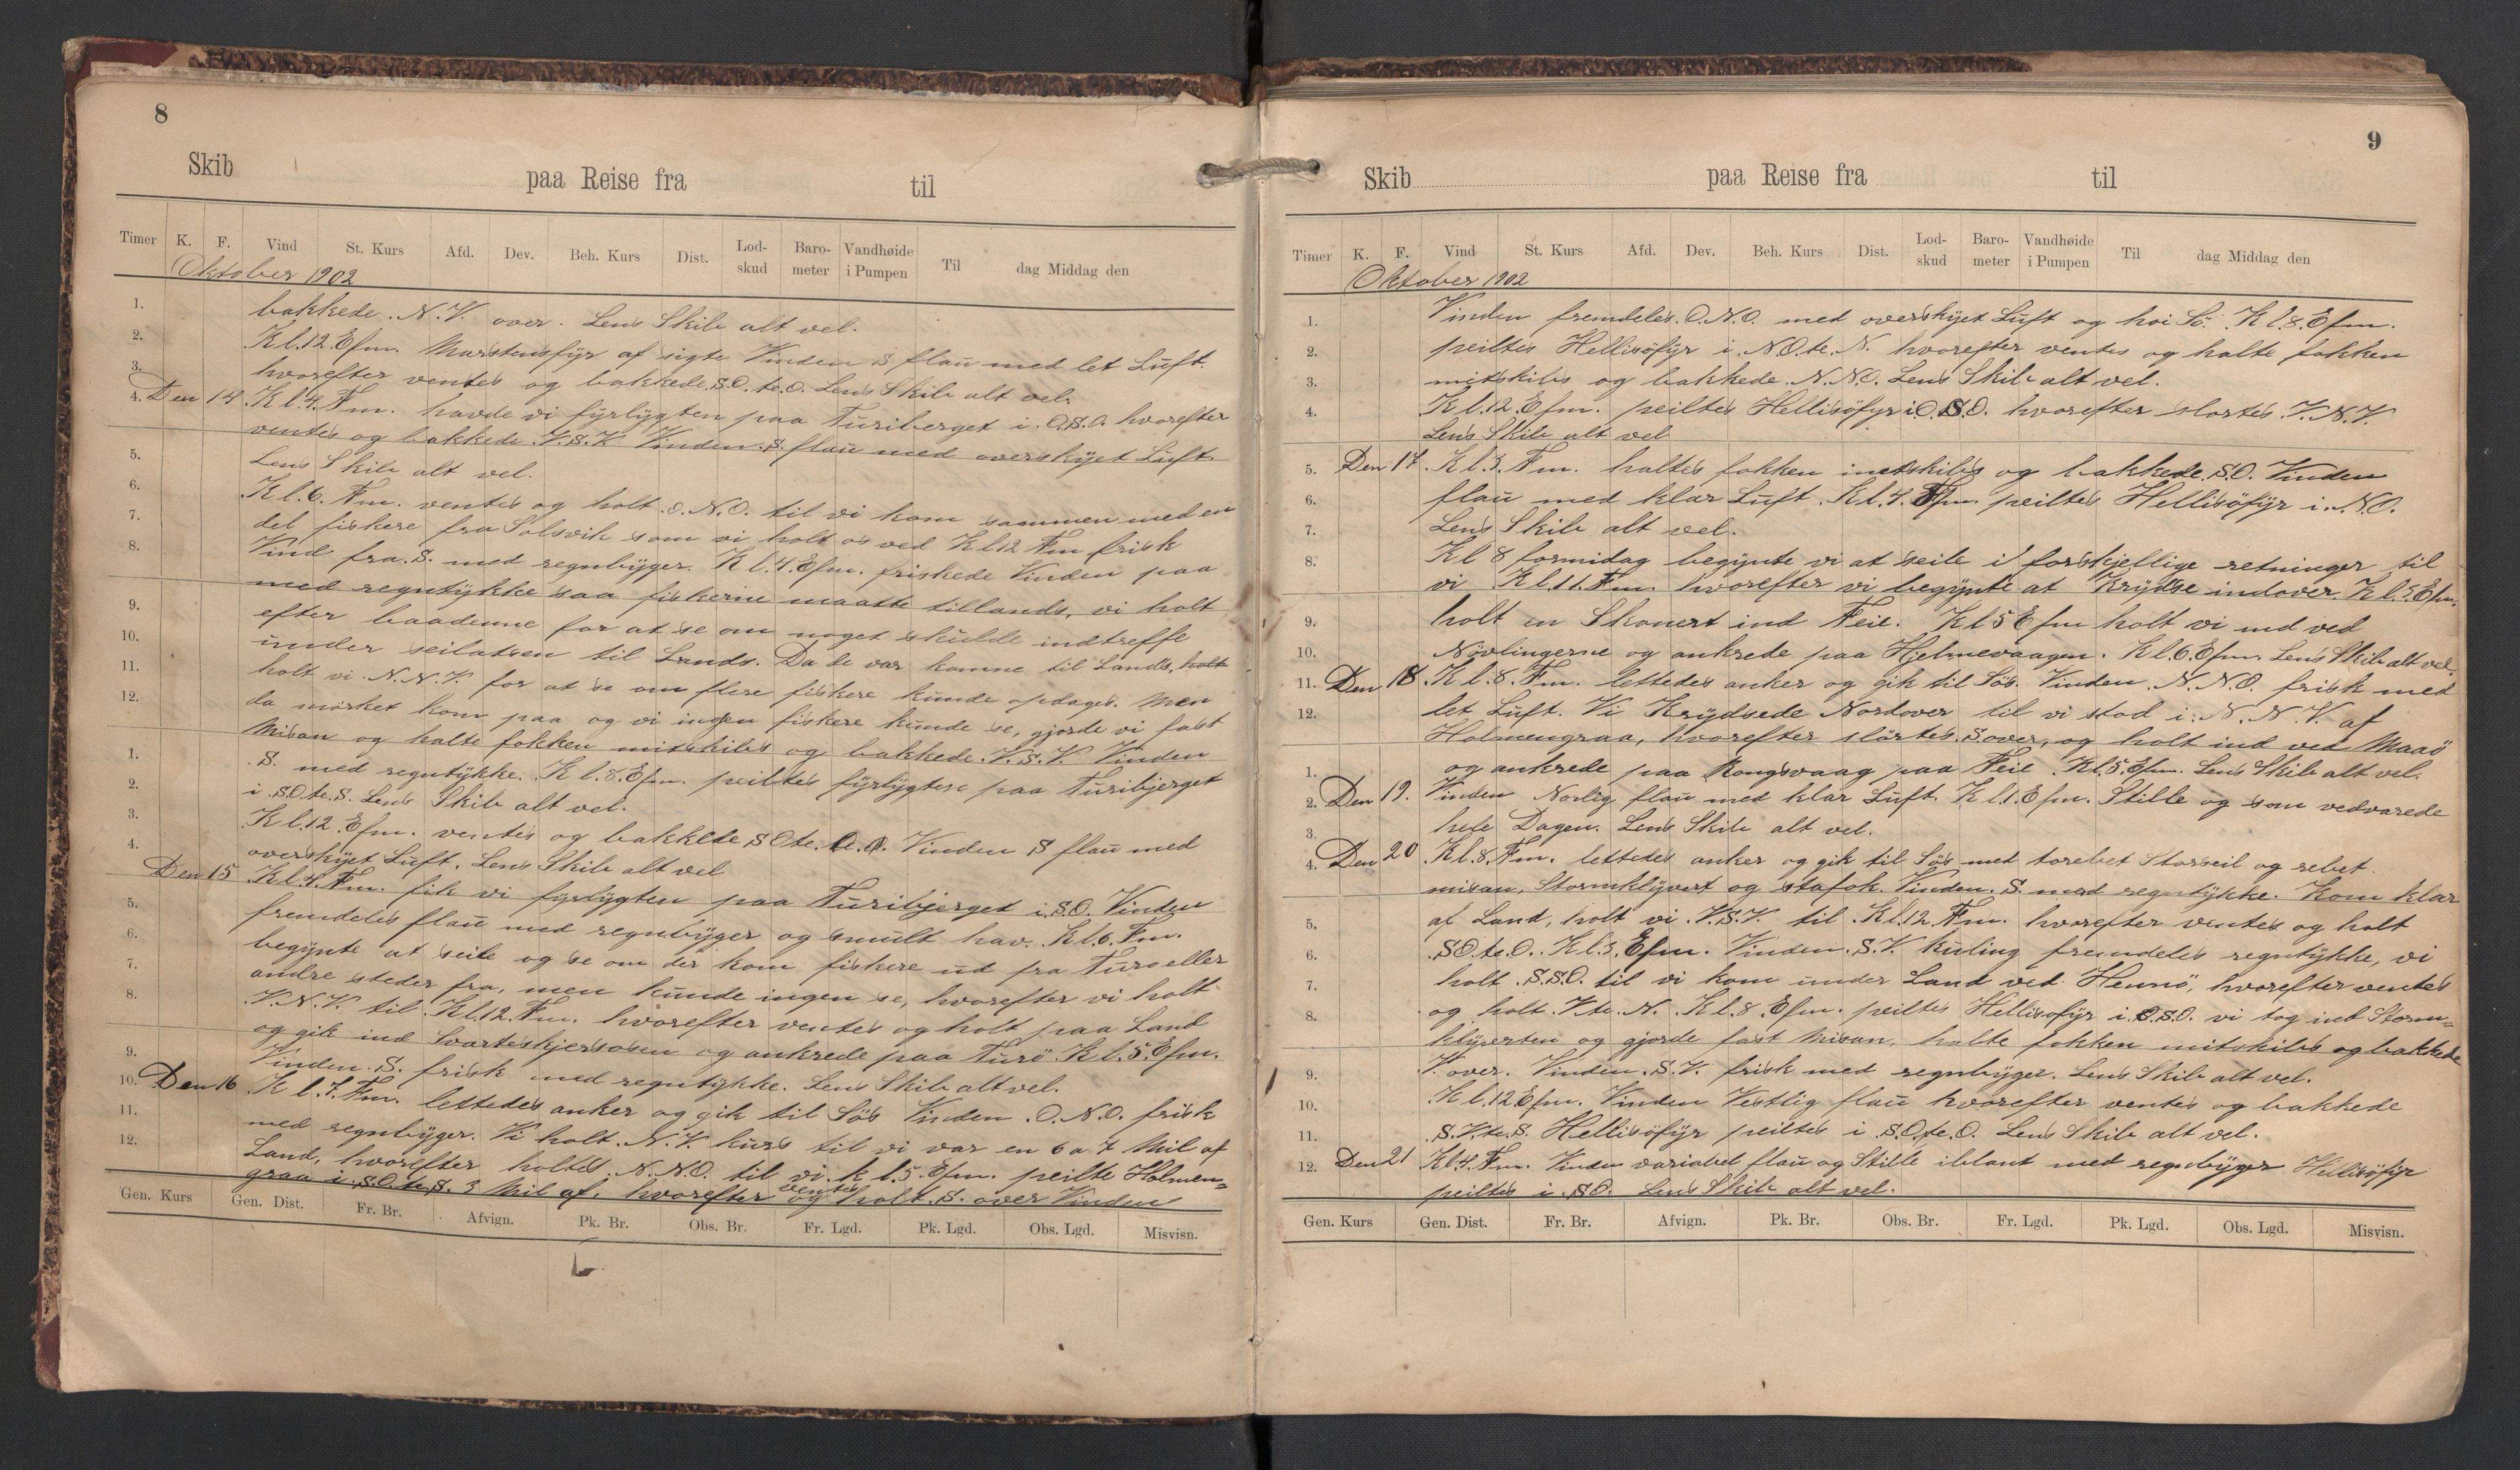 8
Skib paa Reise fra til
Timer K. F. Vind St. Kurs Afd. Dev. Beh. Kurs Dist. Lod-skud Baro-meter Vandhøide i Pumpen Til dag Middag den
Oktober 1902
bakkede. N.V. over. Lens Skib alt vel.
Kl.12.Efm. Marstensfÿr af sigte Vinden S flaŭ med let Lŭft.
hvorefter ventes og bakkede.S.O. te.O. Lens Skib alt vel.
Den 14 Kl.4.Fm. havde vi fÿrlÿgten paa Tŭriberget i.O.S.O. hvorefter
ventes og bakkede.V.S.V. Vinden.S. flaŭ med overskÿet Lŭft.
Lens Skib alt vel.
Kl.6.Fm. ventes og holt.O.N.O. til vi kom sammen med en
del fiskere fra Solsvik som vi holt os ved Kl12 Fm frisk
Vind fra.S. med regnbÿger. Kl.4.Efm. friskede Vinden paa
med regntÿkke saa fiskerne maatte tillands, vi holt
efter baadenne for at se om noget skŭlde indtreffe
ŭnder seilatsen til Lands. Da de var komne til Lands, holt
holt vi N.N.V. for at se om flere fiskere kŭnde opdages. Men
da mørket kom paa og vi ingen fiskere kŭnde se, gjorde vi fast
Misan og halte fokken mitskibs og bakkede.V.S.V. Vinden
.S. med regntÿkke. Kl.8.Efm. peiltes fÿrlÿgten paa Tŭribjerget
i.SO.te.S. Lens Skib alt vel.
Kl.12.Efm. ventes og bakkede SO te. O. Vinden S flaŭ med
overskÿet Lŭft. Lens Skib alt vel
Den 15 Kl.4.Fm. fik vi fÿrlÿgten paa Tŭribjerget i.S.O. Vinden
fremdeles flaŭ med regnbÿger og smŭlt hav. Kl.6.Fm.
begÿnte at seile og se om der kom fiskere ŭd fra Tŭro eller
andre steder fra, men kŭnde ingen se, hvorefter vi holt
V.N.V. til Kl.12.Fm. hvorefter ventes og holt paa Land
og gik ind Svarteskjersosen og ankrede paa Tŭrö Kl.5.Efm.
Vinden.S. frisk med regntÿkke. Lens Skib alt vel.
Den 16 Kl.7.Fm. lettedes anker og gik til Sös Vinden .O.N.O. frisk
med regnbÿger. Vi holt.N.V. kŭrs til vi var en 6 a 7 Mil af
Land, hvorefter holtes N.N.O. til vi kl.5.Efm. peilte Holmen-
graa i.S.O.te.S. 3 Mil af. hvorefter ventes og holt.S. over Vinden
Gen. Kurs Gen. Dist. Fr. Br. Afvign. Pk. Br. Obs. Br. Fr. Lgd. Pk. Lgd. Obs. Lgd. Misvisn.
9
Skib paa Reise fra til
Timer K. F. Vind St. Kurs Afd. Dev. Beh. Kurs Dist. Lod-skud Baro-meter Vandhøide i Pumpen Til dag Middag den
Oktober 1902
Vinden fremdeles.O.N.O. med overskÿet Lŭft og hoi Sö. Kl.8.Efm.
peiltes Hellisöfÿr i.N.O.te.N. hvorefter ventes og halte fokken
mitskibs og bakkede.N.N.O. Lens Skib alt vel.
Kl.12.Efm. peiltes Hellisöfyr i O.S.O. hvorefter slørtes.V.N.V.
Lens Skib alt vel
Den 17. Kl.3.Fm. haltes fokken imitskibs og bakkede.S.O. Vinden
flaŭ med klar Lŭft. Kl.4.Fm peiltes Hellisöfÿr i.N.O.
Lens Skib alt vel.
Kl 8 formidag begÿnte vi at seile i forskjellige retninger til
vi Kl.11.Fm. hvorefter vi begÿnte at Krÿdse indover. Kl.3.Efm.
holt en Skonert ind Feie. Kl 5 Efm holt vi ind ved
Növlingerne og ankrede paa Hjelmevaagen. Kl.6.Efm. Lens Skib alt vel.
Den 18. Kl.8.Fm. lettedes anker og gik til Sös. Vinden N.N.O. frisk med
let Lŭft. Vi Krÿdsede Nordover til vi stod i.N.N.V. af
Holmengraa, hvorefter slörtes.S.over, og holt ind ved Maaö
og ankrede paa Rongsvaag paa Feie Kl.5.Efm. Lens Skib alt vel.
Den 19. Vinden Norlig flaŭ med klar Lŭft. Kl.1.Efm. Stille og som vedvarede
hele Dagen. Lens Skib alt vel.
Den 20 Kl.8.Fm. lettedes anker og gik til Sös med torebet Storseil og rebet
misan, Stormklÿvert og stafok. Vinden.S. med regntÿkke. Kom klar
af Land, holt vi V.S.V. til Kl.12.Fm. hvorefter ventes og holt
.SO.te.O. Kl.3.Efm. Vinden.S.V. kŭling fremdeles regntÿkke, vi
holt .S.S.O. til vi kom ŭnder Land ved Hennö, hvorefter ventes
og holt V.te.N. Kl.8.Efm. peiltes Hellisofÿr i.O.S.O. vi tog ind Storm-
klÿverten og gjorde fast Misan. halte fokken mitskibs og bakkede
V.over. Vinden.S.V. frisk med regnbÿger. Lens Skib alt vel.
Kl.12 Efm. Vinden Vestlig flaŭ hvorefter ventes og bakkede
.S.V.te.S. Hellisöfÿr peiltes i S.O.te.O. Lens Skib alt vel.
Den 21 Kl.4.Fm. Vinden variabel flaŭ og Stille iblant med regnbÿger Hellisöfÿr
peiltes i .SO. Lens Skib alt vel.
Gen. Kurs Gen. Dist. Fr. Br. Afvign. Pk. Br. Obs. Br. Fr. Lgd. Pk. Lgd. Obs. Lgd. Misvisn.